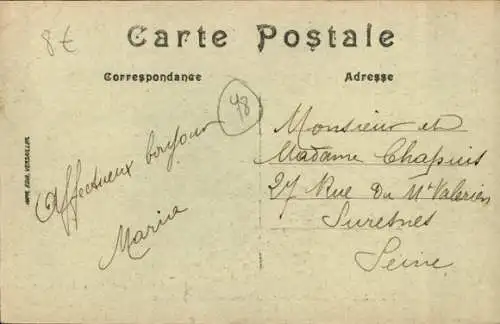 8€
Carte Postale
Correspondance
Adresse
78
Affectueux bonjour
Maria
Monsieur et
Madame Chapuis
27 Rue Du Mt Valerien
Suresnes
Seine